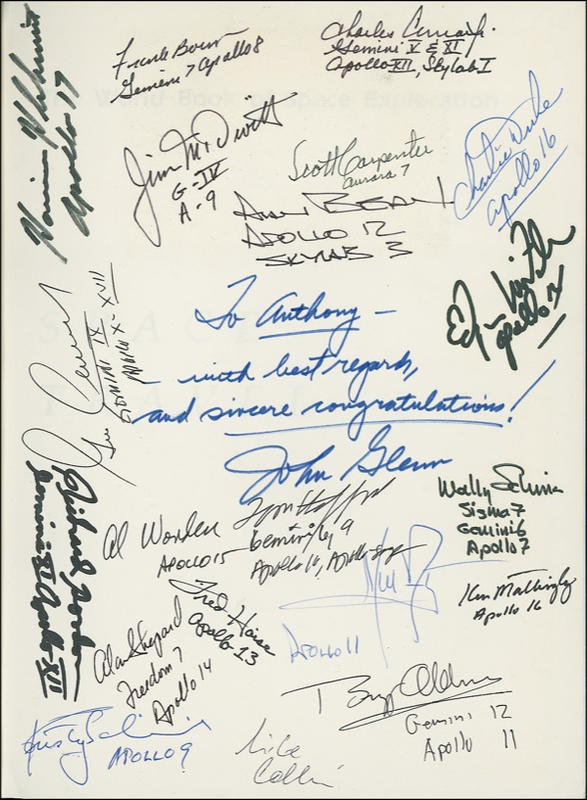 Frank Borman
Gemini 7 Apollo 8
Charles Conrad Jr.
Gemini V & XI
Apollo XII, Skylab I
Harrison H Schmitt
Apollo 17
The World Book of Space Exploration
Jim McDivitt
G-IV
A-9
Scott Carpenter
Aurora 7
Charlie Duke
Apollo 16
Alan BEAN
APOLLO 12
SKYLAB 3
Edgar Mitchell
Apollo 14
To Anthony –
SPACE
with best regards,
TRAVEL
and sincere congratulations!
John Glenn
Gene Cernan
GEMINI IX
APOLLO X-XVII
Richard Gordon
Gemini XI Apollo XII
Al Worden
APOLLO 15
Tom Stafford
Gemini 6, 9
Apollo 10, Apollo-Soyuz
Wally Schirra
Sigma 7
Gemini 6
Apollo 7
Ken Mattingly
Apollo 16
Fred Haise
Apollo 13
APOLLO 11
Alan Shepard
Freedom 7
Apollo 14
Buzz Aldrin
Gemini 12
Apollo 11
APOLLO 9
Mike
Collins